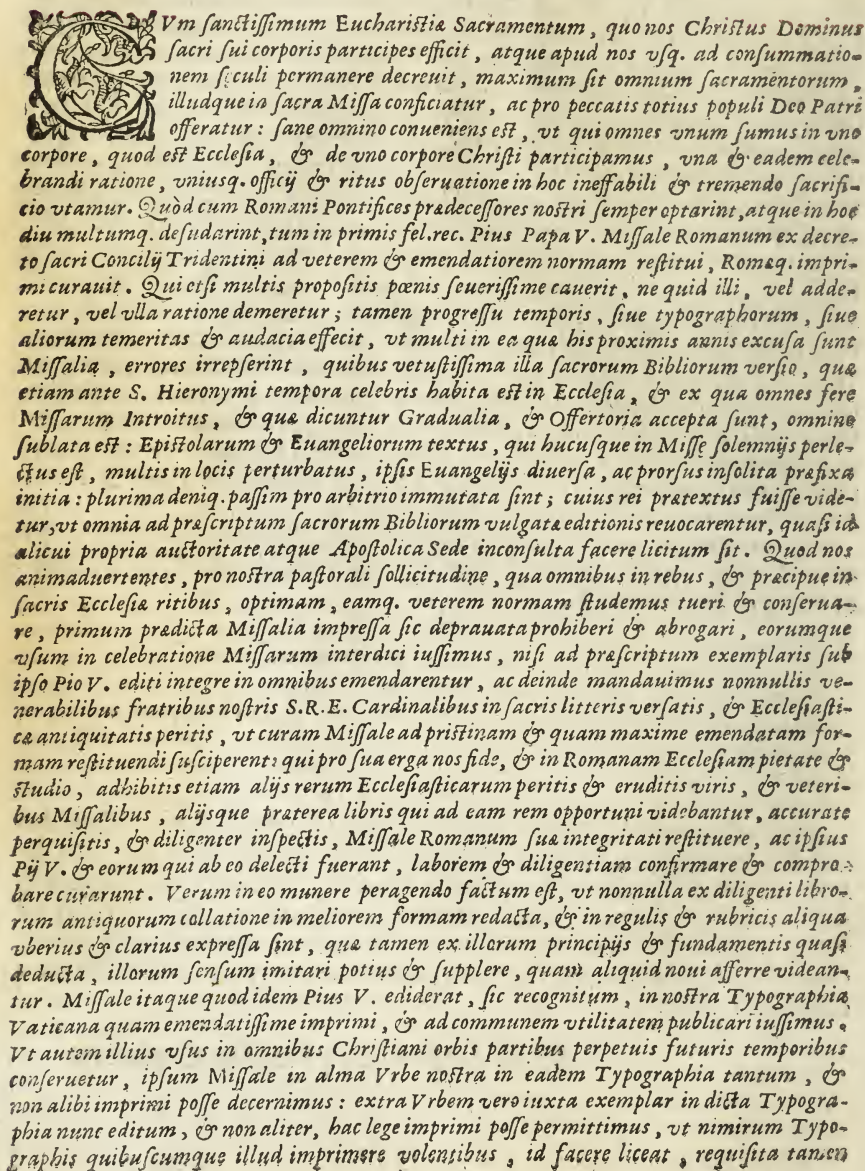 CVm sanctissimum Eucharistiæ Sacramentum, quo nos Christus Dominus
sacri sui corporis participes efficit, atque apud nos vsq. ad consummatio-
nem sæculi permanere decreuit, maximum sit omnium sacramentorum,
illudque in sacra Missa conficiatur, ac pro peccatis totius populi Deo Patri
offeratur: sane omnino conueniens est, vt qui omnes vnum sumus in vno
corpore, quod est Ecclesia, & de vno corpore Christi participamus, vna & eadem cele-
brandi ratione, vniusq. officij & ritus obseruatione in hoc ineffabili & tremendo sacrifi-
cio vtamur. Quòd cum Romani Pontifices prædecessores nostri semper optarint, atque in hoc
diu multumq. desudarint, tum in primis fel. rec. Pius Papa V. Missale Romanum ex decre-
to sacri Concilij Tridentini ad veterem & emendatiorem normam restitui, Romæq. impri-
mi curauit. Qui etsi multis propositis pœnis seuerissime cauerit, ne quid illi, vel adde-
retur, vel vlla ratione demeretur; tamen progressu temporis, siue typographorum, siue
aliorum temeritas & audacia effecit, vt multi in ea quæ his proximis annis excusa sunt
Missalia, errores irrepserint, quibus vetustissima illa sacrorum Bibliorum versio, quæ
etiam ante S. Hieronymi tempora celebris habita est in Ecclesia, & ex qua omnes fere
Missarum Introitus, & quæ dicuntur Gradualia, & Offertoria accepta sunt, omnino
sublata est: Epistolarum & Euangeliorum textus, qui hucusque in Missæ solemnijs perle-
ctus est, multis in locis perturbatus, ipsis Euangelijs diuersa, ac prorsus insolita præfixa
initia: plurima deniq. passim pro arbitrio immutata sint; cuius rei prætextus fuisse vide-
tur, vt omnia ad præscriptum sacrorum Bibliorum vulgatæ editionis reuocarentur, quasi id
alicui propria auctoritate atque Apostolica Sede inconsulta facere licitum sit. Quod nos
animaduertentes, pro nostra pastorali sollicitudine, qua omnibus in rebus, & præcipue in
sacris Ecclesiæ ritibus, optimam, eamq. veterem normam studemus tueri & conserua-
re, primum prædicta Missalia impressa sic deprauata prohiberi & abrogari, eorumque
vsum in celebratione Missarum interdici iussimus, nisi ad præscriptum exemplaris sub
ipso Pio V. editi integre in omnibus emendarentur, ac deinde mandauimus nonnullis ve-
nerabilibus fratribus nostris S.R.E. Cardinalibus in sacris litteris versatis, & Ecclesiasti-
cæ antiquitatis peritis, vt curam Missale ad pristinam & quam maxime emendatam for-
mam restituendi susciperent: qui pro sua erga nos fide, & in Romanam Ecclesiam pietate &
studio, adhibitis etiam alijs rerum Ecclesiasticarum peritis & eruditis viris, & veteri-
bus Missalibus, alijsque præterea libris qui ad eam rem opportuni videbantur, accurate
perquisitis, & diligenter inspectis, Missale Romanum suæ integritati restituere, ac ipsius
Pij V. & eorum qui ab eo delecti fuerant, laborem & diligentiam confirmare & compro-
bare curarunt. Verum in eo munere peragendo factum est, vt nonnulla ex diligenti libro-
rum antiquorum collatione in meliorem formam redacta, & in regulis & rubricis aliqua
vberius & clarius expressa sint, quæ tamen ex illorum principijs & fundamentis quasi
deducta, illorum sensum imitari potius & supplere, quam aliquid noui afferre videan-
tur. Missale itaque quod idem Pius V. ediderat, sic recognitum, in nostra Typographia
Vaticana quam emendatissime imprimi, & ad communem vtilitatem publicari iussimus.
Vt autem illius vsus in omnibus Christiani orbis partibus perpetuis futuris temporibus
conseruetur, ipsum Missale in alma Vrbe nostra in eadem Typographia tantum, &
non alibi imprimi posse decernimus: extra Vrbem vero iuxta exemplar in dicta Typogra-
phia nunc editum, & non aliter, hac lege imprimi posse permittimus, vt nimirum Typo-
graphis quibuscumque illud imprimere volentibus, id facere liceat, requisita tamen